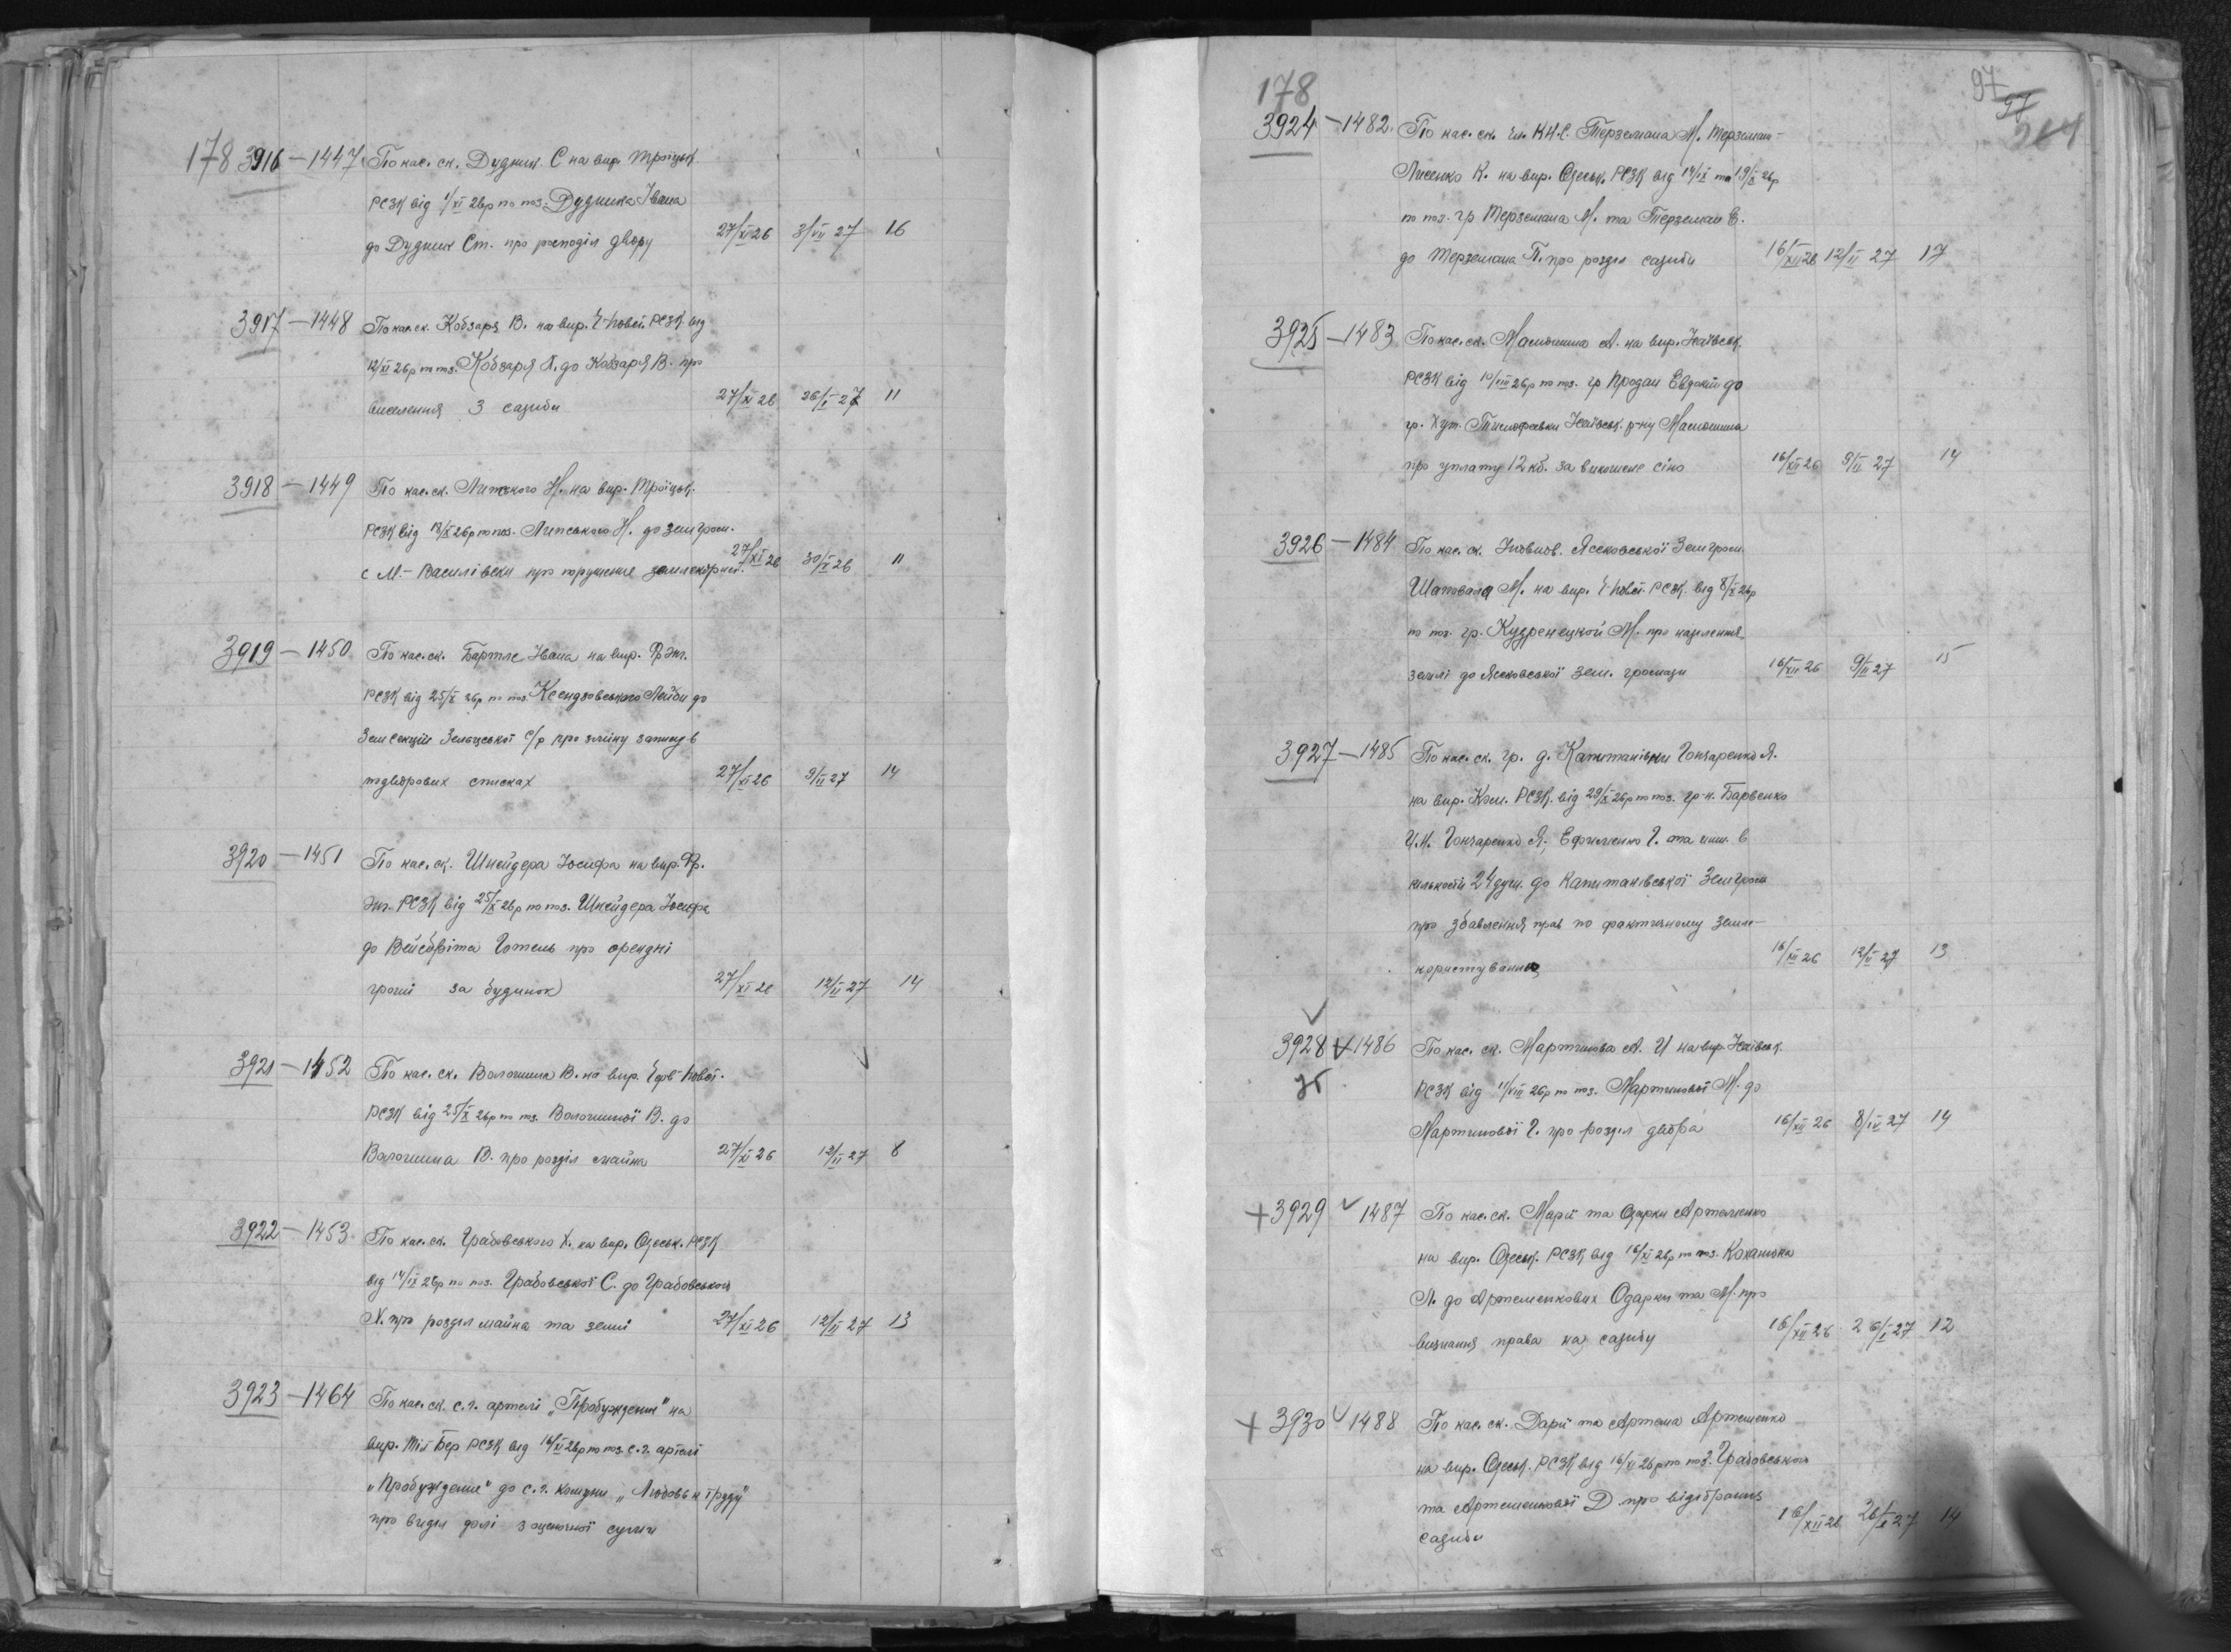 178 3916 — 1447 По кас. ск. Дудник С на вир. Троїцьк.
РСЗК від 1/XI 26р по поз. Дудника Івана
до Дудник Ст. про росподіл двору 27/XI 26 3/VII 27 16
3917 — 1448 По кас. ск. Кобзаря В. на вир. РСЗК від
12/XI 26р по поз. Кобзаря Л. до Кобзаря В. про
виселення з садиби 27/XI 26 26/I 27 11
3918 — 1449 По кас. ск. Липського Н. на вир. Троїцьк.
РСЗК від 18/X 26р по поз. Липського Н. до земгром.
с М.-Василівки про порушення 27/XI 26 30/XI 26 11
3919 — 1450 По кас. ск. Бартле Івана на вир.
РСЗК від 25/X 26р по поз. Ксендзовського Лейби до
Земсекції Зельцської с/р про зміну запису в
подворових списках 27/XI 26 9/II 27 14
3920 — 1451 По кас. ск. Шнейдера Йосифа на вир. Фр.
Енг. РСЗК від 25/X 26р по поз. Шнейдера Йосифа
до Вейсбріта Готель про орендні
гроші за будинок 27/XI 26 12/II 27 14
3921 — 1452 По кас. ск. Волошина В. на вир.
РСЗК від 25/X 26р по поз. Волошиної В. до
Волошина В. про розділ майна 27/XI 26 12/II 27 8
3922 — 1453 По кас. ск. Грабовського Х. на вир. Одеськ. РСЗК
від 14/IX 26р по поз. Грабовської С. до Грабовського
Х. про розділ майна та землі 27/XI 26 12/II 27 13
3923 — 1464 По кас. ск. с.г. артелі „Пробуждение" на
вир. РСЗК від 16/XI 26р по поз. с.г. артелі
„Пробуждение" до с.г. комуни „Любовь к труду"
про виділ долі з оціночної суми
97
97
178
3924 — 1482. По кас. ск. Терземана М. Терземан-
Лисенко К. на вир. Одеськ. РСЗК від 14/IX та 19/X 26р
по поз. гр Терземана М. та Терземан Е.
до Терземана П. про розділ садиби 16/XII 26 12/II 27 17
3925 — 1483 По кас. ск. Масютина А. на вир. Ісаївськ.
РСЗК від 10/VIII 26р по поз. гр Продан Евдокії до
гр. хут. Ісаївськ. р-ну Масютина
про уплату 12 кб. за викошене сіно 16/XII 26 9/II 27 14
3926 — 1484 По кас. ск. Уповнов. Ясковської Земгром.
Шаповала М. на вир. РСЗК від 8/X 26р
по поз. гр. Кудренецкой М. про наділення
землі до Ясковської Зем. громади 16/XII 26 9/II 27 15
3927 — 1485 По кас. ск. гр. д. Капитанівки Гончаренко Я.
на вир. Ком. РСЗК від 29/X 26р по поз. гр-н. Барвенко
И.М. Гончаренко Я., Ефименко Г. та инш. в
кількости 24 душ. до Капитанівської Земгром
про збавлення прав по фактичному земле-
користуванню 16/XII 26 12/II 27 13
3928 1486 По кас. ск. Мартинова А. И на вир. Ісаївськ.
РСЗК від 11/VIII 26р по поз. Мартинової М. до
Мартинової Г. про розділ двора 16/XII 26 8/IV 27 14
+ 3929 1487 По кас. ск. Марії та Одарки Артеменко
на вир. Одеськ. РСЗК від 16/XI 26р по поз. Коханюка
Л. до Артеменкових Одарки та М. про
визнання права на садибу 16/XII 26 26/I 27 12
+ 3930 1488 По кас. ск. Дарії та Артема Артеменко
на вир. Одеськ. РСЗК від 16/XI 26р по поз. Грабовського
та Артеменкової Д про відібрання
садиби 16/XII 26 26/I 27 14